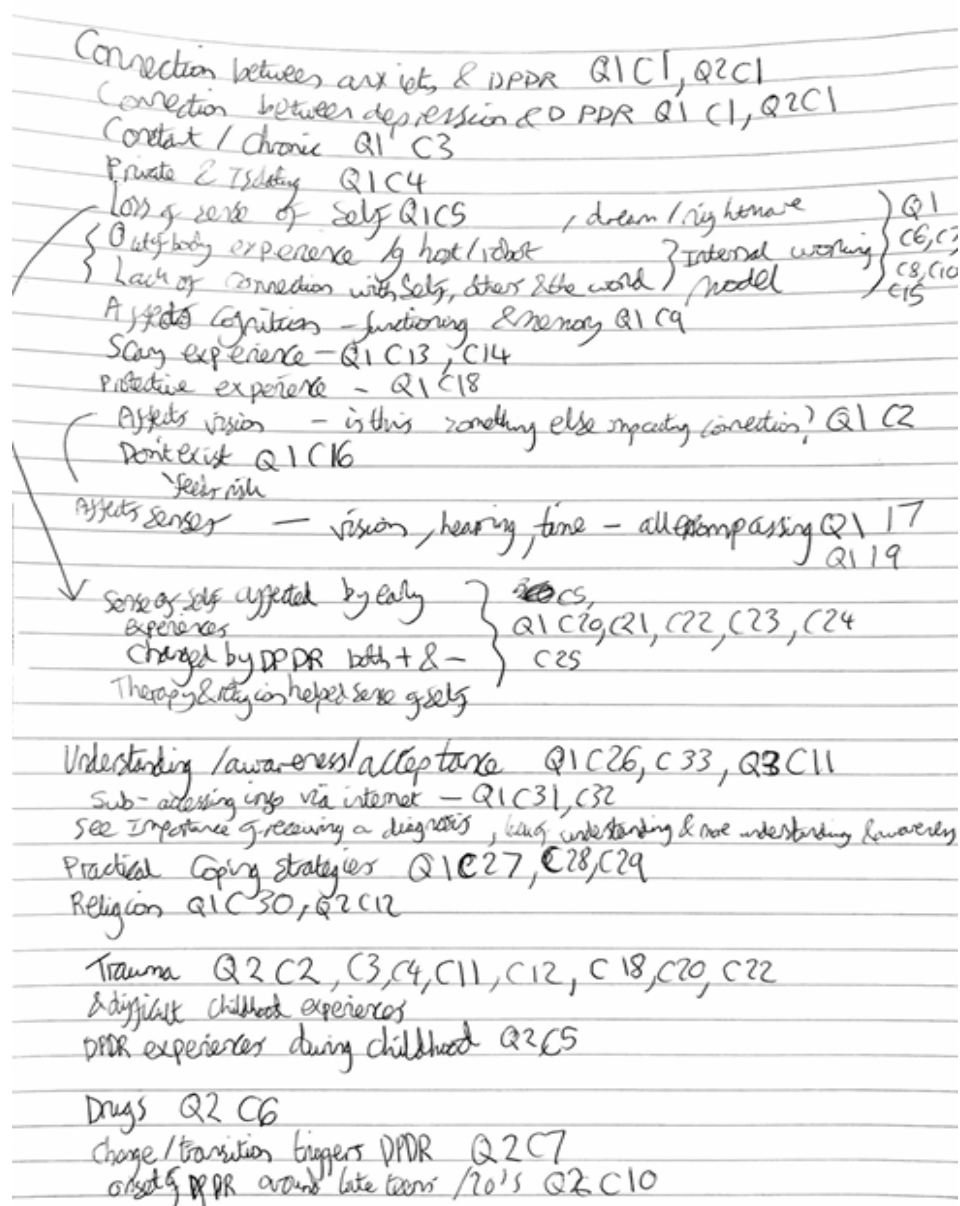 Connection between anxiety & DPDR Q1C1, Q2C1
Connection between depression & DPDR Q1 C1, Q2C1
Constant / Chronic Q1 C3
Private & Isolating Q1C4
Loss of sense of Self Q1C5 , dream / nightmare
Out of body experience / ghost / robot } Internal working model } Q1 C6, C7 C8, C10 C15
Lack of connection with Self, others & the world
Affects cognition - functioning & memory Q1 C9
Scary experience - Q1 C13, C14
Protective experience - Q1 C18
Affects vision - is this something else impacting connection? Q1 C2
Don't exist Q1 C16
feels
Affects senses - vision, hearing, time - all encompassing Q1 17
Q1 19
Sense of self affected by early experiences } C5,
Q1 C20, C21, C22, C23, C24
Changed by DPDR both + & - C25
Therapy & religion helped sense of self
Understanding / awareness / acceptance Q1C26, C33, Q3C11
Sub - accessing info via internet - Q1C31, C32
See Importance of receiving a diagnosis, understanding & more understanding & awareness
Practical Coping strategies Q1C27, C28, C29
Religion Q1C30, Q2C12
Trauma Q2C2, C3, C4, C11, C12, C18, C20, C22
& difficult childhood experiences
DPDR experiences during childhood Q2C5
Drugs Q2 C6
Change / transition triggers DPDR Q2C7
onset of DPDR around late teens / 20's Q2 C10